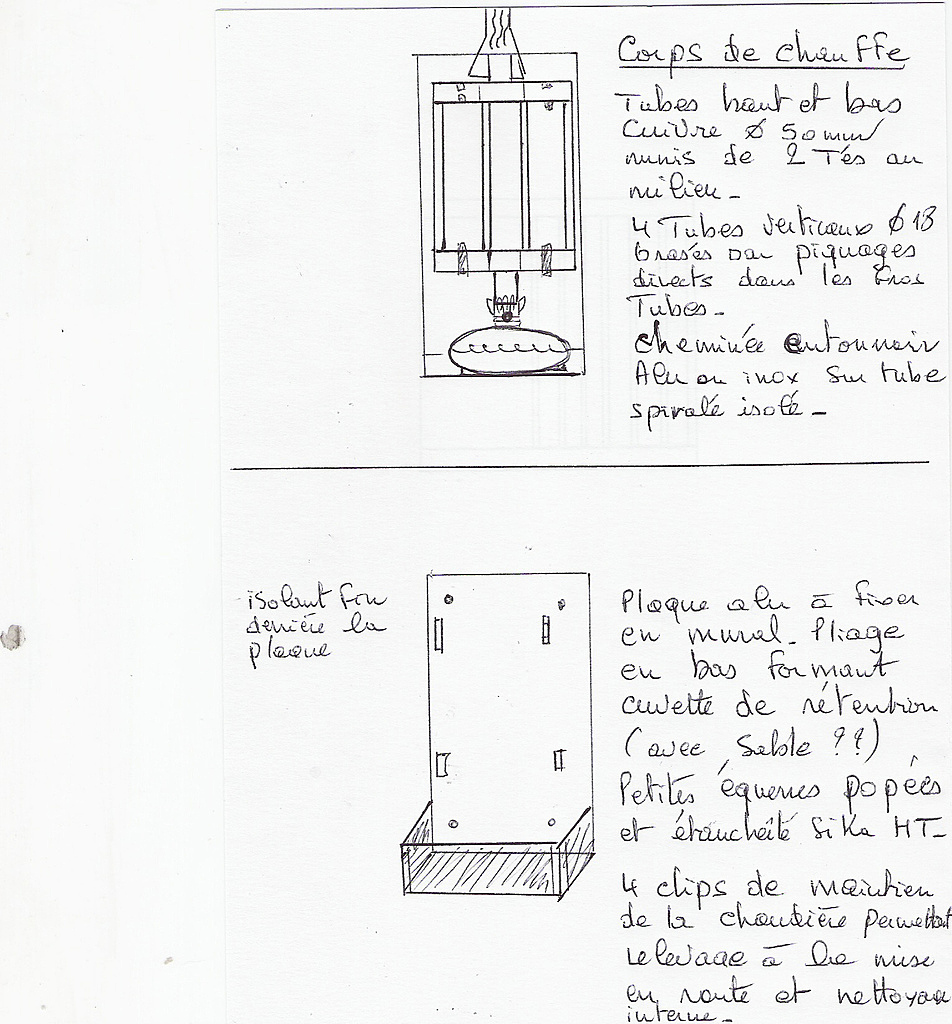 Corps de chauffe
Tubes haut et bas
Cuivre Ø 50 mm
munis de 2 Tés au
milieu -
4 Tubes verticaux Ø 18
brasés par piquages
directs dans les Gros
Tubes -
cheminée entonnoir
Alu ou inox sur tube
spiralé isolé -
isolant fin
derrière la
plaque
Plaque alu à fixer
en mural - Pliage
en bas formant
cuvette de rétention
(avec sable ??)
Petites équerres popées
et étanchéité Sika HT -
4 clips de maintien
de la chaudière permettant
relevage à la mise
en route et nettoyage
interne -